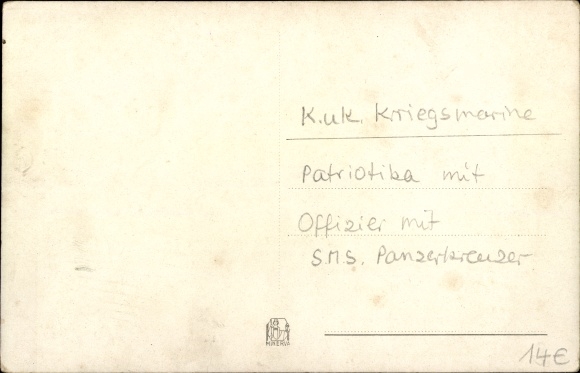 K.u.K. Kriegsmarine
Patriotika mit
Offizier mit
SMS. Panzerkreuzer
MINERVA
14€